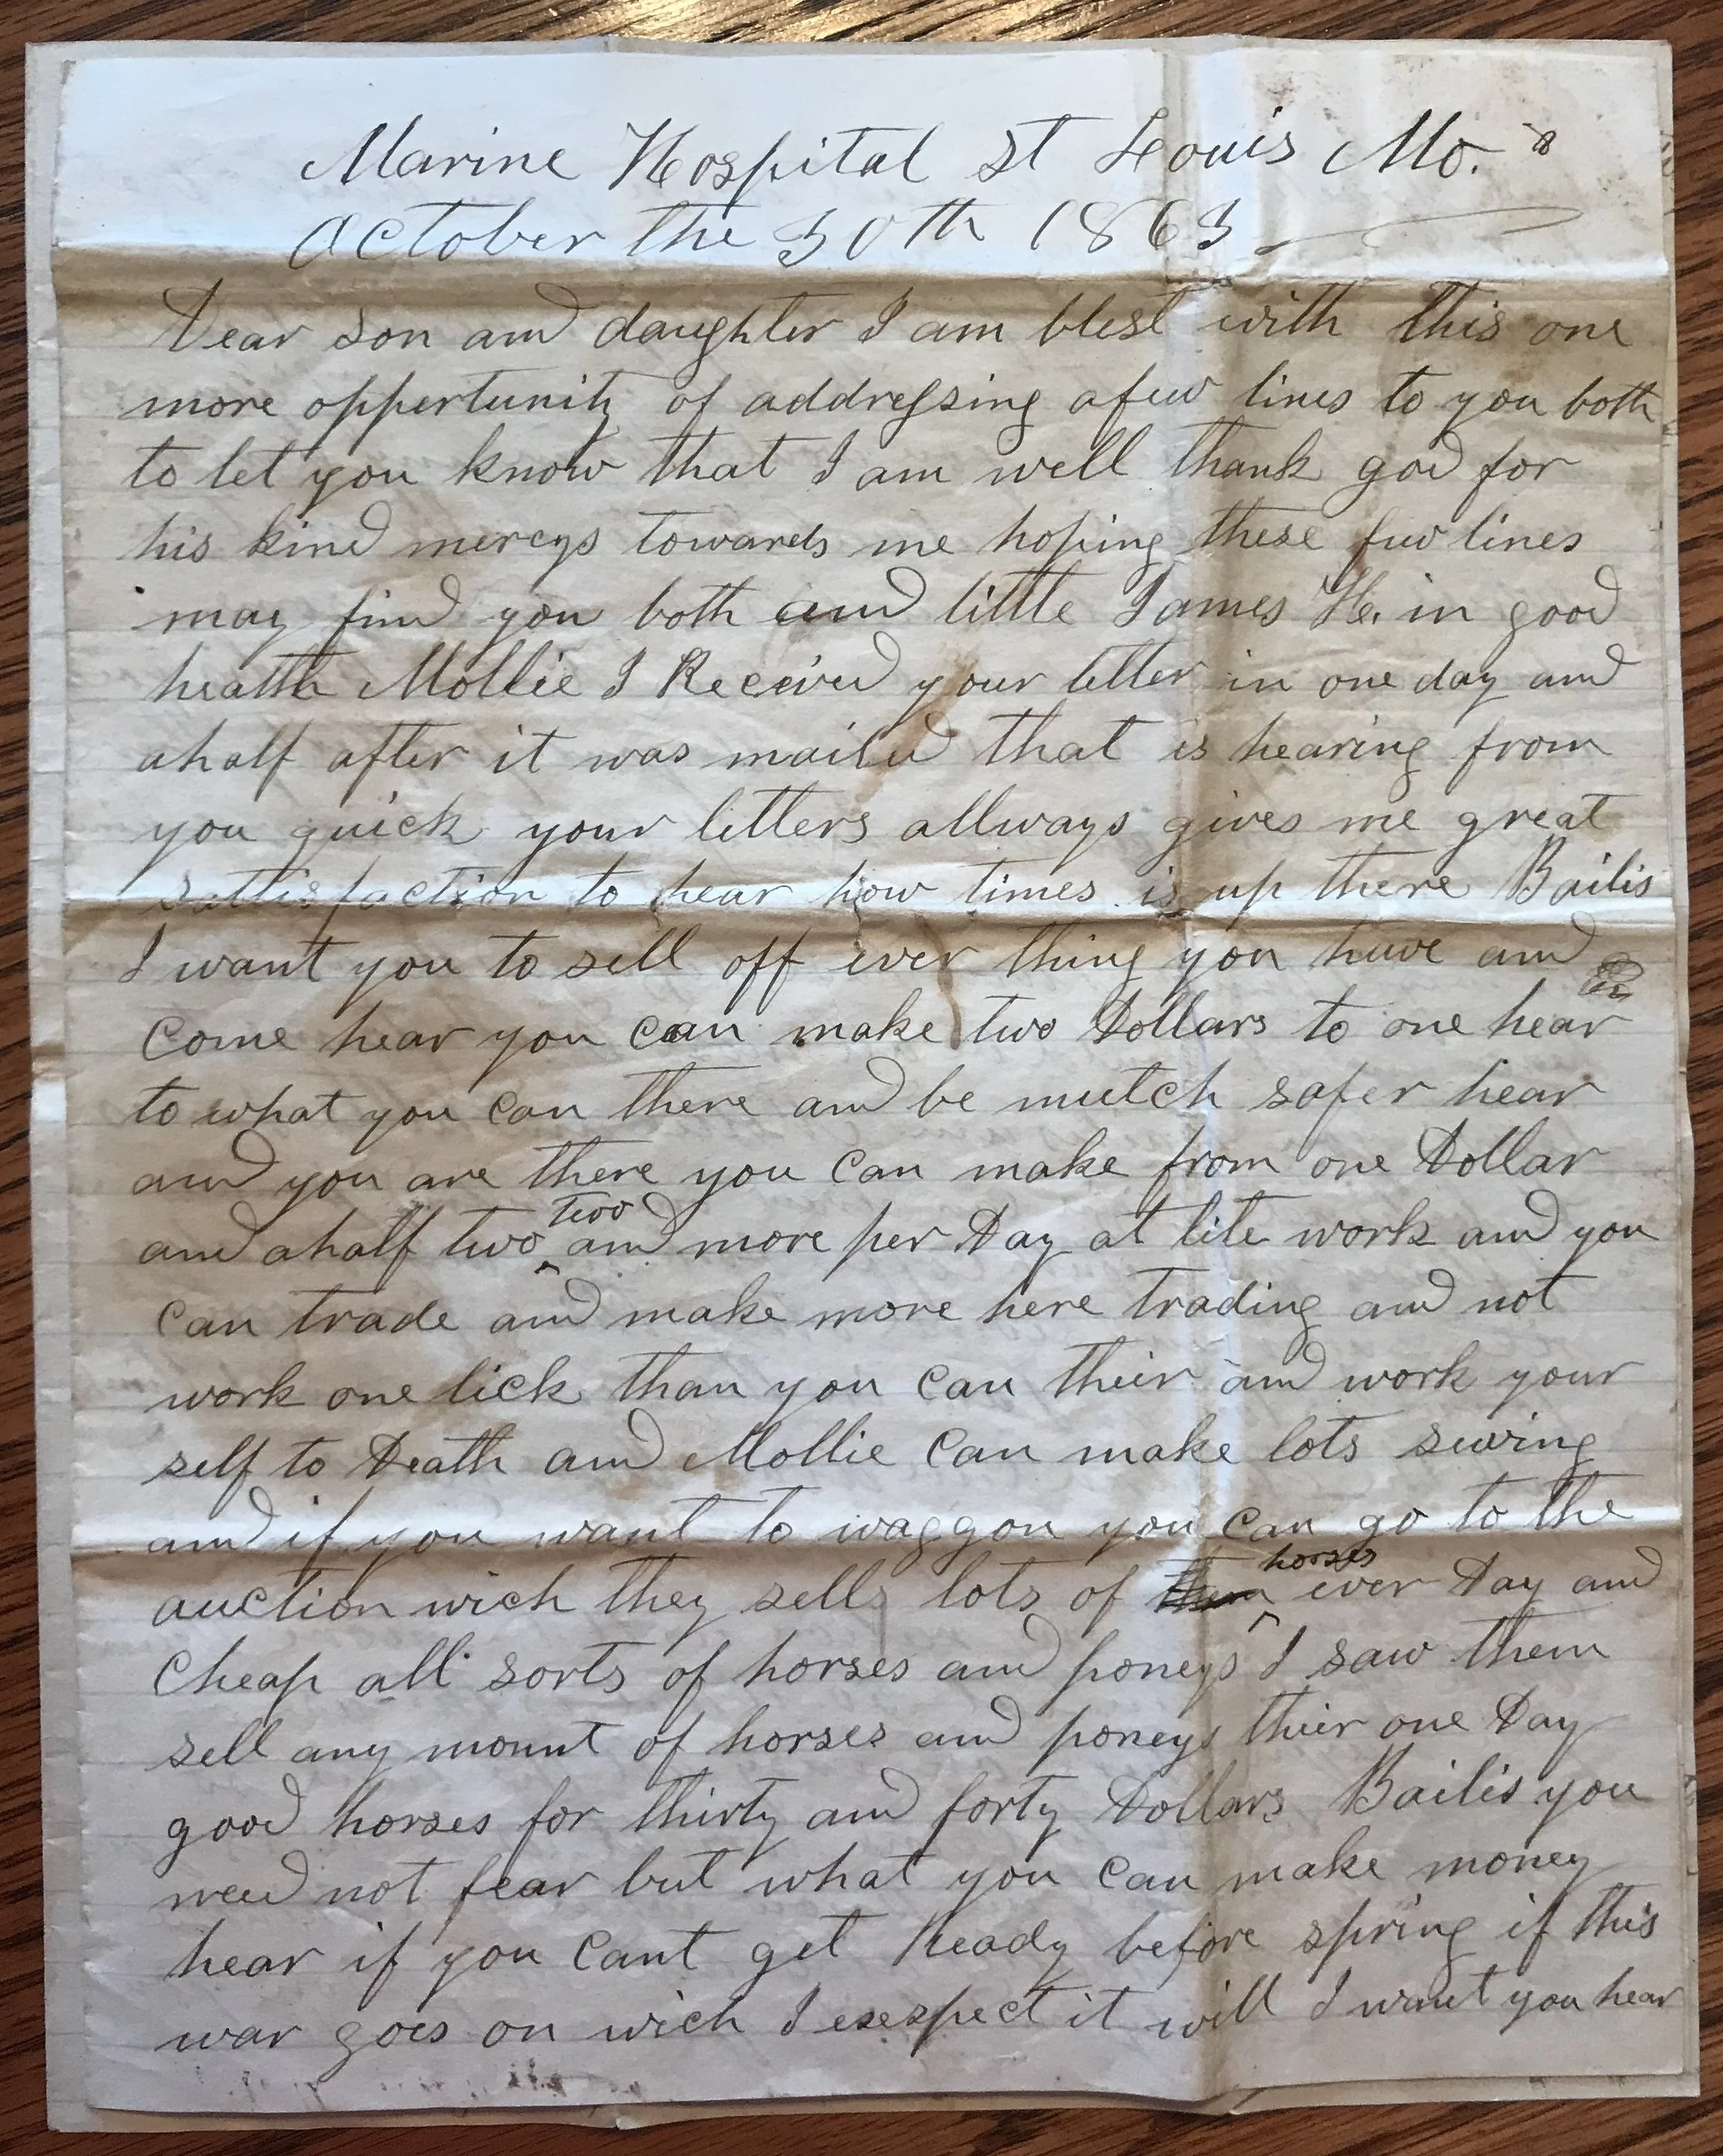 Marine Hospital St Louis Mo.
October the 30th 1863
Dear son and daughter I am blest with this one
more oppertunity of addressing afew lines to you both
to let you know that I am well thank god for
his kind mercys towards me hoping these few lines
may find you both and little James H. in good
health Mollie I Received your letter in one day and
ahalf after it was mailed that is hearing from
you quick your letters allways gives me great
sattisfaction to hear how times is up there Bailis
I want you to sell off ever thing you have and
Come hear you Can make two Dollars to one hear
to what you Can there and be mutch safer hear
and you are there you Can make from one Dollar
and ahalf two two and more per Day at lite work and you
Can trade and make more here trading and not
work one lick than you Can their and work your
self to Death and Mollie Can make lots sewing
and if you want to waggon you Can go to the
auction wich they sells lots of them horses ever Day and
Cheap all sorts of horses and poneys I saw them
sell any mount of horses and poneys their one Day
good horses for thirty and forty Dollars Bailis you
need not fear but what you Can make money
hear if you Cant get Ready before spring if this
war goes on wich I exespect it will I want you hear